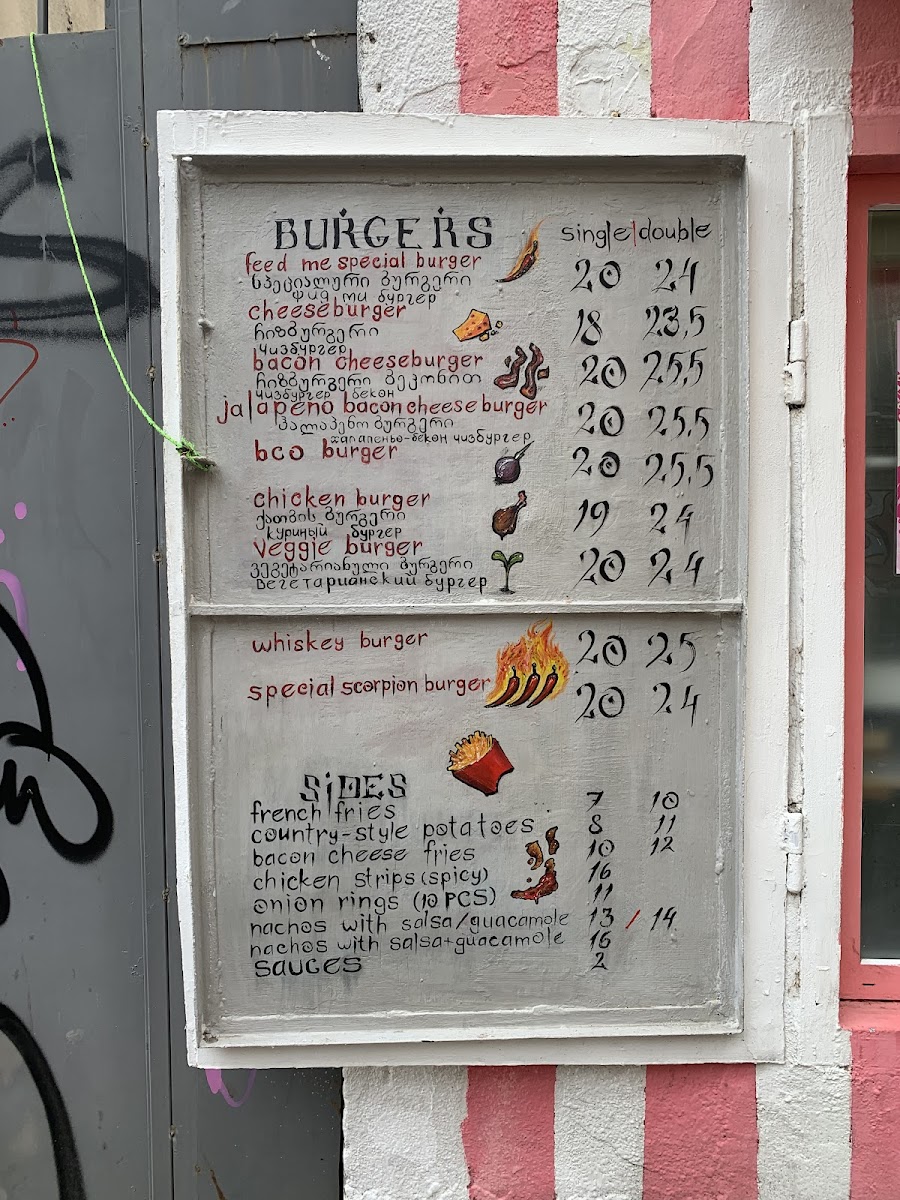 BURGERS single/double
feed me special burger 20 24
სპეციალური ბურგერი
фид ми бургер
cheeseburger 18 23,5
ჩიზბურგერი
чизбургер
bacon cheeseburger 20 25,5
ჩიზბურგერი ბეკონით
чизбургер бекон
jalapeno bacon cheese burger 20 25,5
ჰალაპენო ბურგერი
халапеньо-бекон чизбургер
bco burger 20 25,5
chicken burger 19 24
ქათმის ბურგერი
куриный бургер
veggie burger 20 24
ვეგეტარიანული ბურგერი
вегетарианский бургер
whiskey burger 20 25
special scorpion burger 20 24
SiDES
french fries 7 10
country-style potatoes 8 11
bacon cheese fries 10 12
chicken strips (spicy) 16
onion rings (10 PCS) 11
nachos with salsa/guacamole 13 / 14
nachos with salsa+guacamole 16
sauces 2